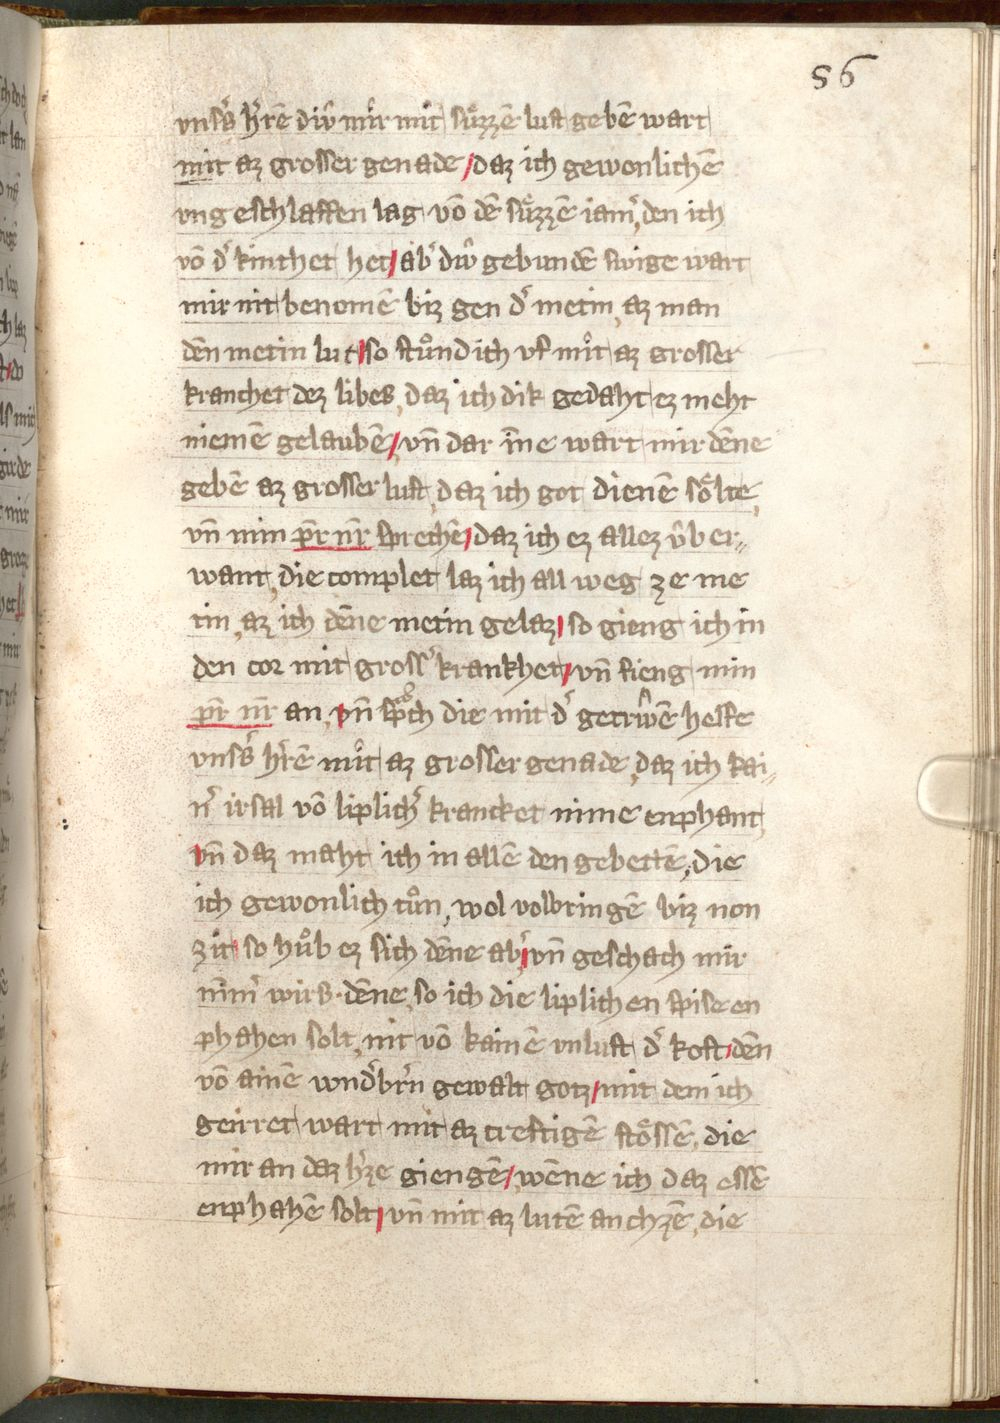 56
vnsˢ hˢrē diṽ mir mit süͤzzē lust gebē wart
mit az grosser genade / daz ich gewonlichē
vngeschlaffen lag vō dē süͤzzē iamˢ, den ich
vō dˢ kinthet het / abˢ diṽ gebundē swige wart
mir nit benomē biz gen dˢ metin, az man
dēn metin lut / so stuͦnd ich vf mit az grosser
kranchet dez libes, daz ich dik gedaht ez meht
niemē gelaubē / vn̄ dar īne wart mir dēne
gebē az grosser lust, daz ich got dienē söͤlte,
vn̄ min pr̄ nr̄ sprechē / daz ich ez allez v̂ber⸗
want, die complet laz ich all weg ze me
tin, az ich dēne metin gelaz / so gieng ich in
den cor mit grossˢ krankhet / vn̄ fieng min
pr̄ nr̄ an, vn̄ sp̄ch die mit dˢ getriẘē helfe
vnsˢs hˢrē mit az grosser genade, daz ich kai⸗
nˢ irsal vō liplichˢ krancket nime enphant,
vn̄ daz maht ich in allē den gebettē, die
ich gewonlich tuͦn, wol volbringē biz non
zit / so huͦb ez sich dēne abˢ / vn̄ geschach mir
nīmˢ wirs · dēne, so ich die liplichen spise en
phahen solt, nit vō kainē vnlust dˢ kost / dēn
vō ainē wndˢbrˢn gewalt gotz / mit dem ich
geirret wart mit az creftigē stöͤssē, die
mir an daz hˢze giengē / wēne ich daz essē
enphahē solt / vn̄ mit az lutē anchzē, die